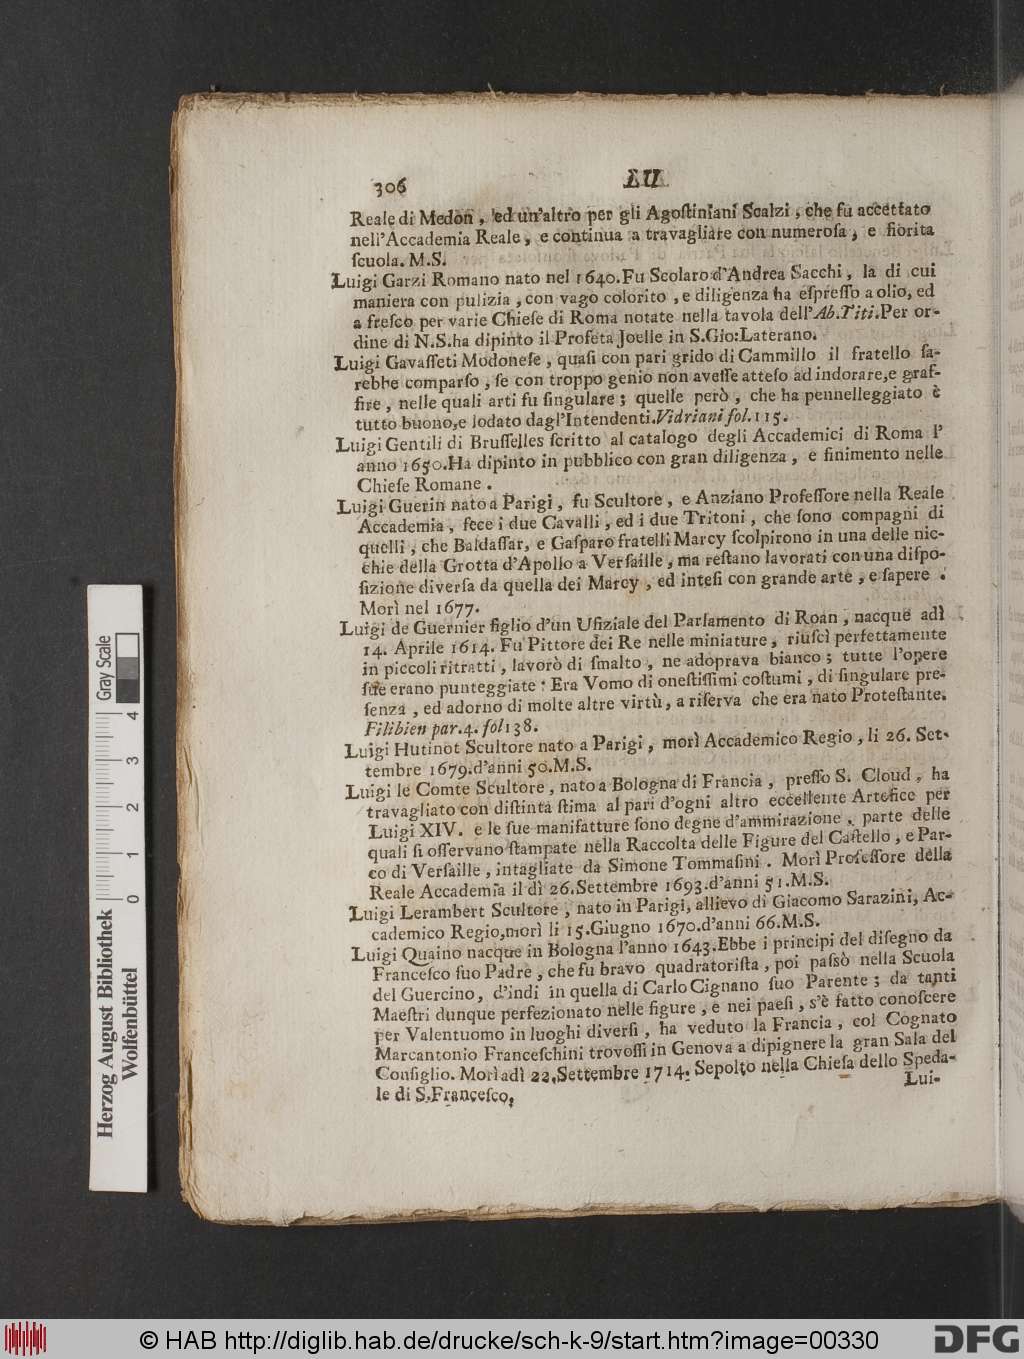 306
LU
Reale di Medon, ed un'altro per gli Agoſtiniani Scalzi, che fu accettato
nell'Accademia Reale, e continua a travagliare con numeroſa, e fiorita
ſcuola. M.S.
Luigi Garzi Romano nato nel 1640. Fu Scolaro d'Andrea Sacchi, la di cui
maniera con pulizia, con vago colorito, e diligenza ha eſpreſſo a olio, ed
a freſco per varie Chieſe di Roma notate nella tavola dell'Ab. Titi. Per or-
dine di N.S. ha dipinto il Profeta Joelle in S. Gio: Laterano.
Luigi Gavaſſeti Modoneſe, quaſi con pari grido di Cammillo il fratello ſa-
rebbe comparſo, ſe con troppo genio non aveſſe atteſo ad indorare, e graf-
fire, nelle quali arti fu ſingulare; quelle però, che ha pennelleggiato è
tutto buono, e lodato dagl'Intendenti. Vidriani fol. 115.
Luigi Gentili di Bruſſelles ſcritto al catalogo degli Accademici di Roma l'
anno 1650. Ha dipinto in pubblico con gran diligenza, e finimento nelle
Chieſe Romane.
Luigi Guerin nato a Parigi, fu Scultore, e Anziano Profeſſore nella Reale
Accademia, fece i due Cavalli, ed i due Tritoni, che ſono compagni di
quelli, che Baldaſſar, e Gaſparo fratelli Marcy ſcolpirono in una delle nic-
chie della Grotta d'Apollo a Verſaille, ma reſtano lavorati con una diſpo-
ſizione diverſa da quella dei Marcy, ed inteſi con grande arte, e ſapere.
Morì nel 1677.
Luigi de Guernier figlio d'un Ufiziale del Parlamento di Roan, nacque adì
14. Aprile 1614. Fu Pittore dei Re nelle miniature, riuſcì perfettamente
in piccoli ritratti, lavorò di ſmalto, ne adoprava bianco; tutte l'opere
ſue erano punteggiate: Era Vomo di oneſtiſſimi coſtumi, di ſingulare pre-
ſenza, ed adorno di molte altre virtù, a riſerva che era nato Proteſtante.
Filibien par. 4. fol 138.
Luigi Hutinot Scultore nato a Parigi, morì Accademico Regio, li 26. Set-
tembre 1679. d'anni 50. M.S.
Luigi le Comte Scultore, nato a Bologna di Francia, preſſo S. Cloud, ha
travagliato con diſtinta ſtima al pari d'ogni altro eccellente Artefice per
Luigi XIV. e le ſue manifatture ſono degne d'ammirazione, parte delle
quali ſi oſſervano ſtampate nella Raccolta delle Figure del Caſtello, e Par-
co di Verſaille, intagliate da Simone Tommaſini. Morì Profeſſore della
Reale Accademia il dì 26. Settembre 1693. d'anni 51. M.S.
Luigi Lerambert Scultore, nato in Parigi, allievo di Giacomo Sarazini, Ac-
cademico Regio, morì li 15. Giugno 1670. d'anni 66. M.S.
Luigi Quaino nacque in Bologna l'anno 1643. Ebbe i principi del diſegno da
Franceſco ſuo Padre, che fu bravo quadratoriſta, poi paſsò nella Scuola
del Guercino, d'indi in quella di Carlo Cignano ſuo Parente; da tanti
Maeſtri dunque perfezionato nelle figure, e nei paeſi, s'è fatto conoſcere
per Valentuomo in luoghi diverſi, ha veduto la Francia, col Cognato
Marcantonio Franceſchini trovoſſi in Genova a dipignere la gran Sala del
Conſiglio. Morì adì 22. Settembre 1714. Sepolto nella Chieſa dello Speda-
le di S. Franceſco.
Lui-
Gray Scale
0 1 2 3 4
Herzog August Bibliothek
Wolfenbüttel
© HAB http://diglib.hab.de/drucke/sch-k-9/start.htm?image=00330
DFG